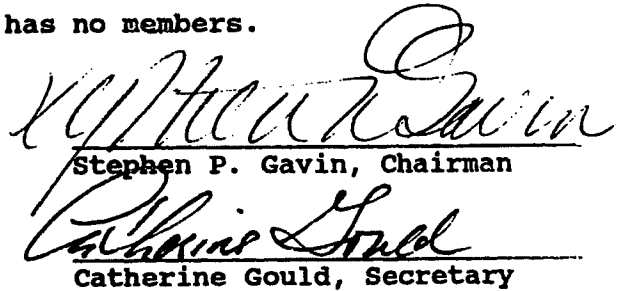 has no members.
Stephen P. Gavin, Chairman
Catherine Gould
Catherine Gould, Secretary